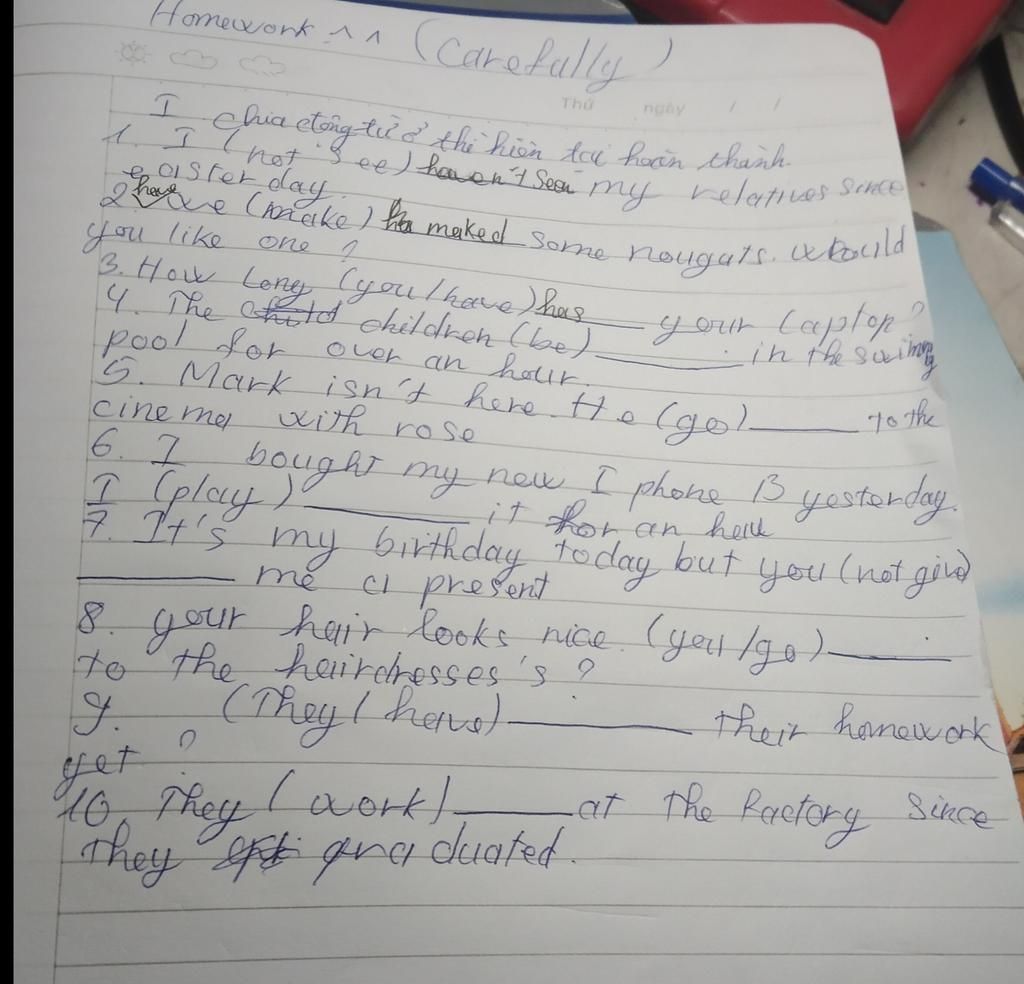 Homework ^^ (Carefully)
Thứ ngày / /
I chia động từ ở thì hiện tại hoàn thành
1. I (not see) haven't seen my relatives since
easter day
2. we (make) have maked some nougats. would
you like one ?
3. How long (you/have) has ______ your laptop?
4. The children (be) ______ in the swimming
pool for over an hour.
5. Mark isn't here. He (go) ______ to the
cinema with rose
6. I bought my new I phone 13 yesterday.
I (play) ______ it for an
7. It's my birthday today but you (not give)
______ me a present
8. your hair looks nice. (you/go) ______
to the hairdresses's ?
9. (They/have) ______ their homework
yet ?
10. They (work) ______ at the factory since
they graduated.